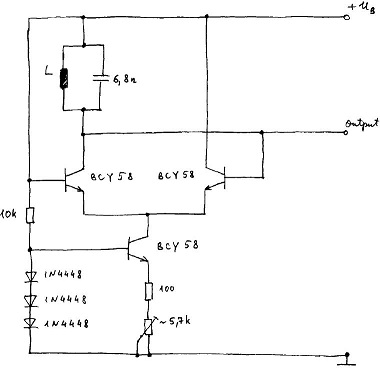 + U_B
L
6,8n
Output
BCY 58
BCY 58
10k
BCY 58
1N4448
1N4448
1N4448
100
~5,7k